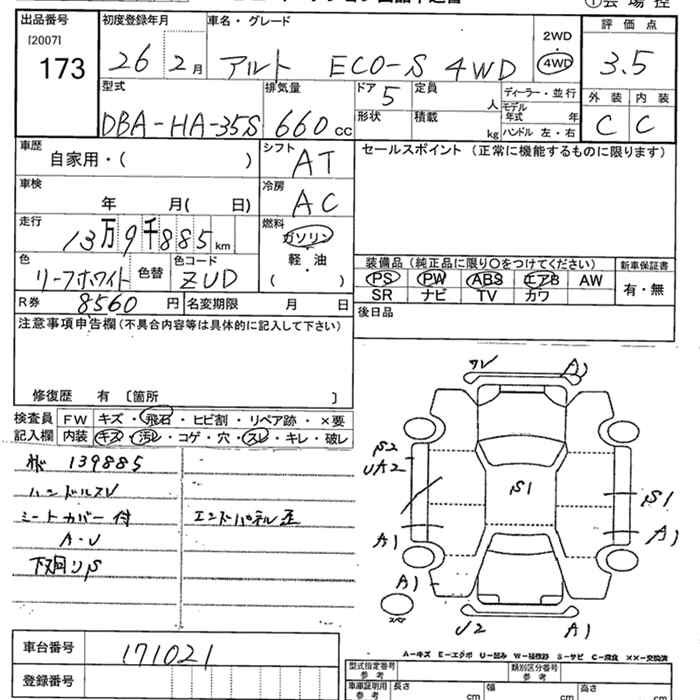 出品番号 初度登録年月 車名・グレード 評価点
[2007] 2WD
173 26 2月 アルト ECO-S 4WD 4WD 3.5
型式 排気量 ドア 5 定員 人 ディーラー・並行 外装 内装
モデル年式 年
DBA-HA-35S 660cc 形状 積載 kg ハンドル 左・右 C C
車歴 自家用・( ) シフト AT セールスポイント (正常に機能するものに限ります)
車検 年 月( 日) 冷房 AC
走行 13万9千885km 燃料 ガソリン
軽・油
( )
色 リーフホワイト 色替 色コード ZUD
装備品 (純正品に限り〇をつけてください) 新車保証書
PS PW ABS エアB AW 有・無
SR ナビ TV カワ
R券 8560 円 名変期限 月 日 後日品
注意事項申告欄(不具合内容等は具体的に記入して下さい)
修復歴 有 〔箇所 〕
検査員 FW キズ・飛石・ヒビ割・リペア跡・×要
記入欄 内装 キズ・汚レ・コゲ・穴・スレ・キレ・破レ
139885
ハンドルスレ
シートカバー付 エンドパネル歪
A・U
下廻りS
A1
S2
UA2
S1
S1
A1
A1
A1
U2 A1
A-キズ E-エクボ U-凹み W-補修跡 S-サビ C-腐食 ××-交換済
車台番号 171021
型式指定番号 参考 類別区分番号 参考
登録番号 車庫証明用 参考 長さ cm 幅 cm 高さ cm